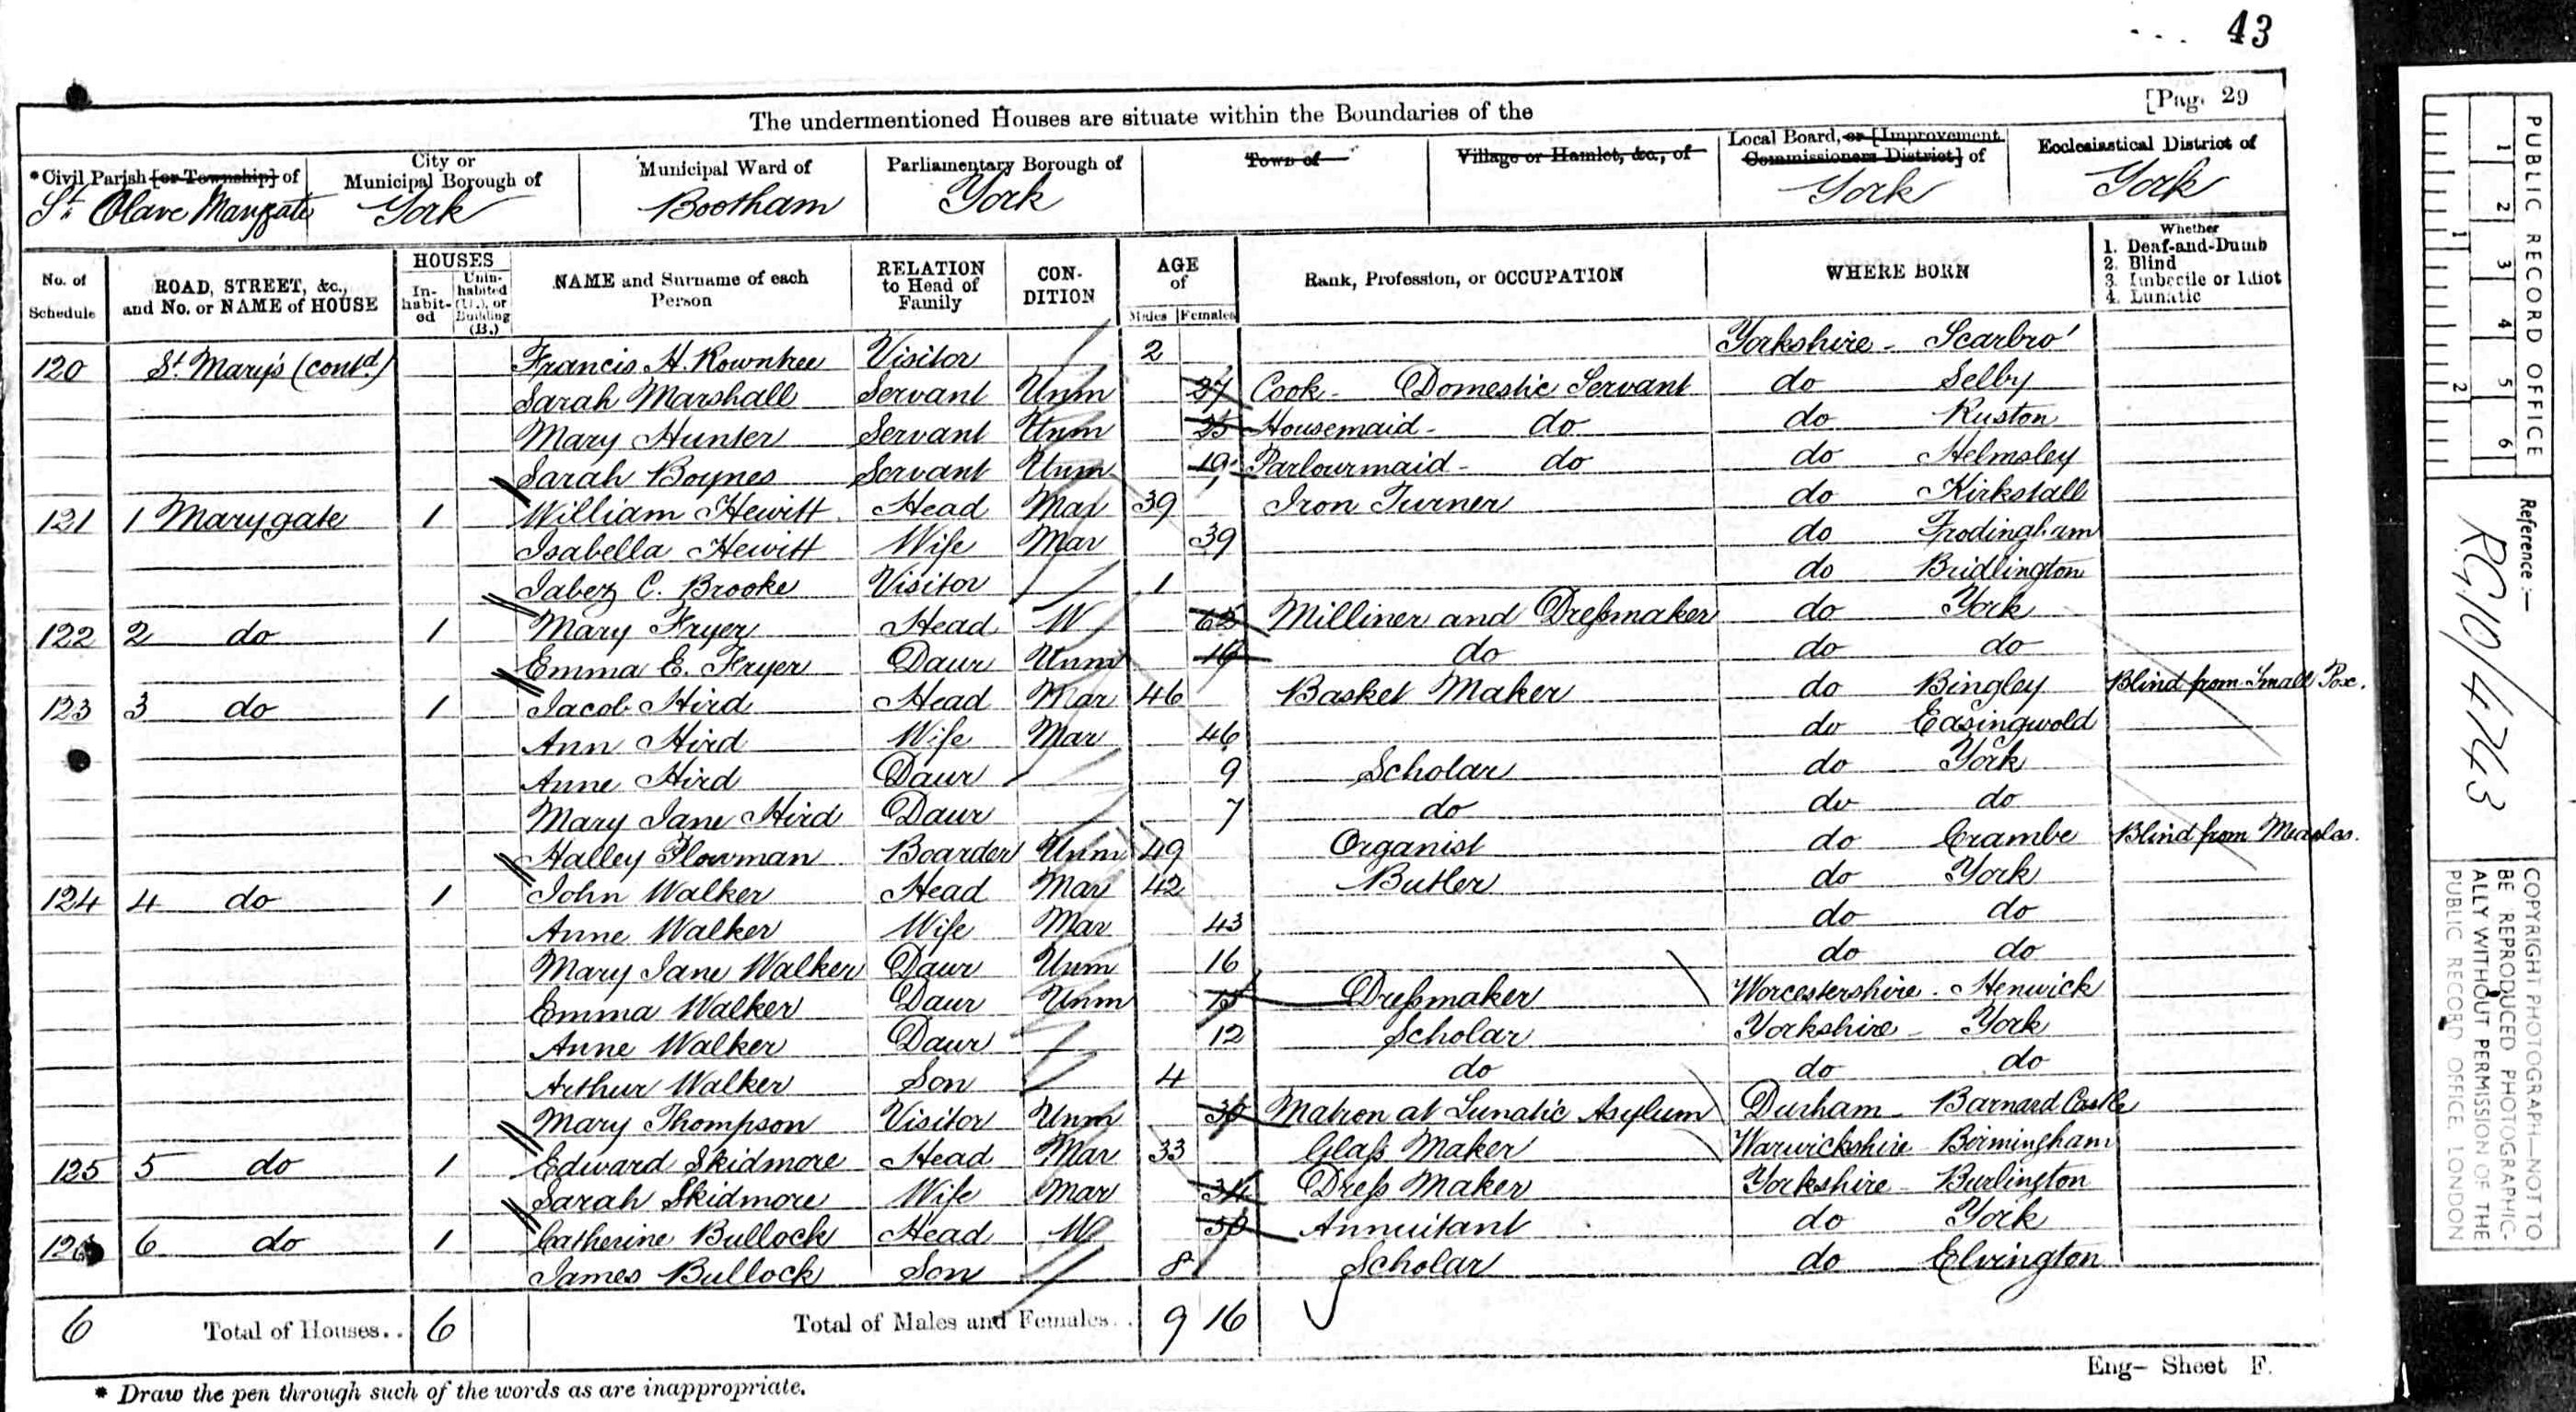 43
[Pag. 29
The undermentioned Houses are situate within the Boundaries of the
*Civil Parish [or Township] of | City or Municipal Borough of | Municipal Ward of | Parliamentary Borough of | Town of | Village or Hamlet, &c., of | Local Board, or [Improvement Commissioners District] of | Ecclesiastical District of
St. Olave Marygate | York | Bootham | York | York | York
No. of Schedule | ROAD, STREET, &c., and No. or NAME of HOUSE | HOUSES In-habit-ed | Unin-habited (U.), or Building (B.) | NAME and Surname of each Person | RELATION to Head of Family | CON-DITION | AGE of Males | Females | Rank, Profession, or OCCUPATION | WHERE BORN | Whether 1. Deaf-and-Dumb 2. Blind 3. Imbecile or Idiot 4. Lunatic
120 St. Mary's (contd) Francis H. Rowntree Visitor 2 Yorkshire - Scarbro'
Sarah Marshall Servant Unm 27 Cook - Domestic Servant do Selby
Mary Hunter Servant Unm 25 Housemaid - do do Ruston
Sarah Boynes Servant Unm 19 Parlourmaid - do do Helmsley
121 1 Marygate 1 William Hewitt Head Mar 39 Iron Turner do Kirkstall
Isabella Hewitt Wife Mar 39 do Frodingham
Jabez C. Brooke Visitor 1 do Bridlington
122 2 do 1 Mary Fryer Head W Milliner and Dressmaker do York
Emma E. Fryer Daur Unm do do do
123 3 do 1 Jacob Hird Head Mar 46 Basket Maker do Bingley Blind from Small Pox.
Ann Hird Wife Mar 46 do Easingwold
Anne Hird Daur 9 Scholar do York
Mary Jane Hird Daur 7 do do do
Halley Plowman Boarder Unm 49 Organist do Crambe Blind from Measles.
124 4 do 1 John Walker Head Mar 42 Butler do York
Anne Walker Wife Mar 43 do do
Mary Jane Walker Daur Unm 16 do do
Emma Walker Daur Unm 15 Dressmaker Worcestershire - Henwick
Anne Walker Daur 12 Scholar Yorkshire - York
Arthur Walker Son 4 do do do
Mary Thompson Visitor Unm Matron at Lunatic Asylum Durham - Barnard Castle
125 5 do 1 Edward Skidmore Head Mar 33 Glass Maker Warwickshire - Birmingham
Sarah Skidmore Wife Mar Dress Maker Yorkshire - Burlington
126 6 do 1 Catherine Bullock Head W Annuitant do York
James Bullock Son 8 Scholar do Elvington
6 Total of Houses.. 6 Total of Males and Females.. 9 16
Eng- Sheet F.
* Draw the pen through such of the words as are inappropriate.
1 2 3 4 5 6
1 2
PUBLIC RECORD OFFICE
Reference :—
RG10/4743
COPYRIGHT PHOTOGRAPH—NOT TO
BE REPRODUCED PHOTOGRAPHIC-
ALLY WITHOUT PERMISSION OF THE
PUBLIC RECORD OFFICE, LONDON